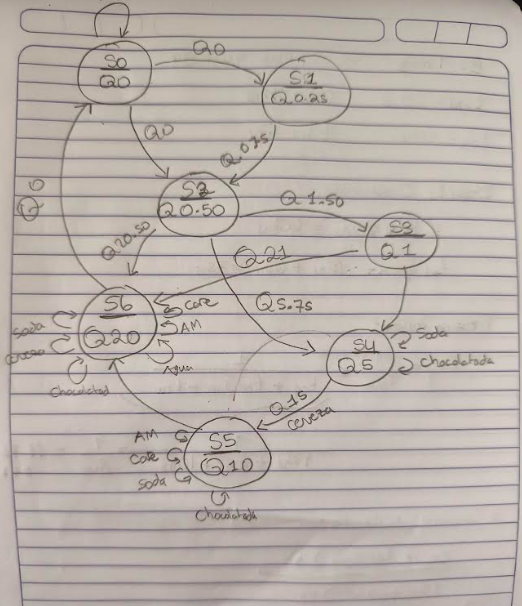 Q0
S0
Q0
S1
Q0.25
Q0
Q0.75
S2
Q0.50
Q1.50
Q20.50
Q21
S3
Q1
Q0
Q5.75
S6
Q20
Cafe
AM
Agua
Soda
Cerveza
Chocolatad
S4
Q5
Soda
Chocolatada
Q15
Cerveza
S5
Q10
AM
Cafe
Soda
Chocolatada